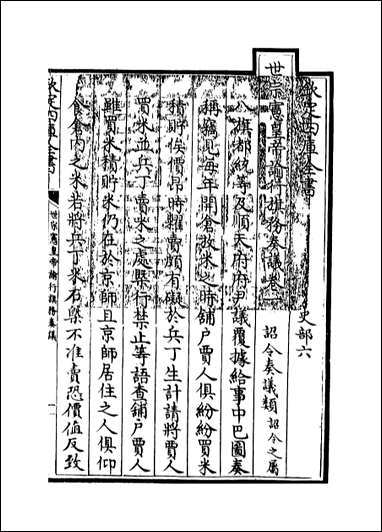 欽定四庫全書
史部六
世宗憲皇帝諭行旗務奏議卷一
詔令奏議類 詔令之屬
八旗都統等及順天府府尹議覆據給事中巴圖奏
稱竊見每年開倉放米之時舖户賈人俱紛紛買米
積貯俟價昂時糶賣頗有礙於兵丁生計請將賈人
買米並兵丁賣米之處槩行禁止等語查鋪户賈人
雖買米積貯米仍在於京師且京師居住之人俱仰
食倉内之米若將兵丁米石槩不准賣恐價值反致
欽定四庫全書
世宗憲皇帝諭行旗務奏議
一